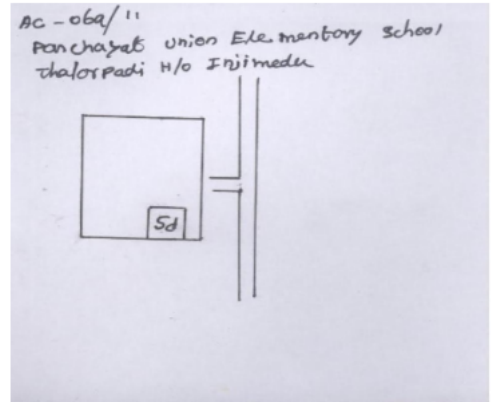 AC - 069/11
Panchayat union Elementary School
Thalorpadi H/o Injimedu
Sd